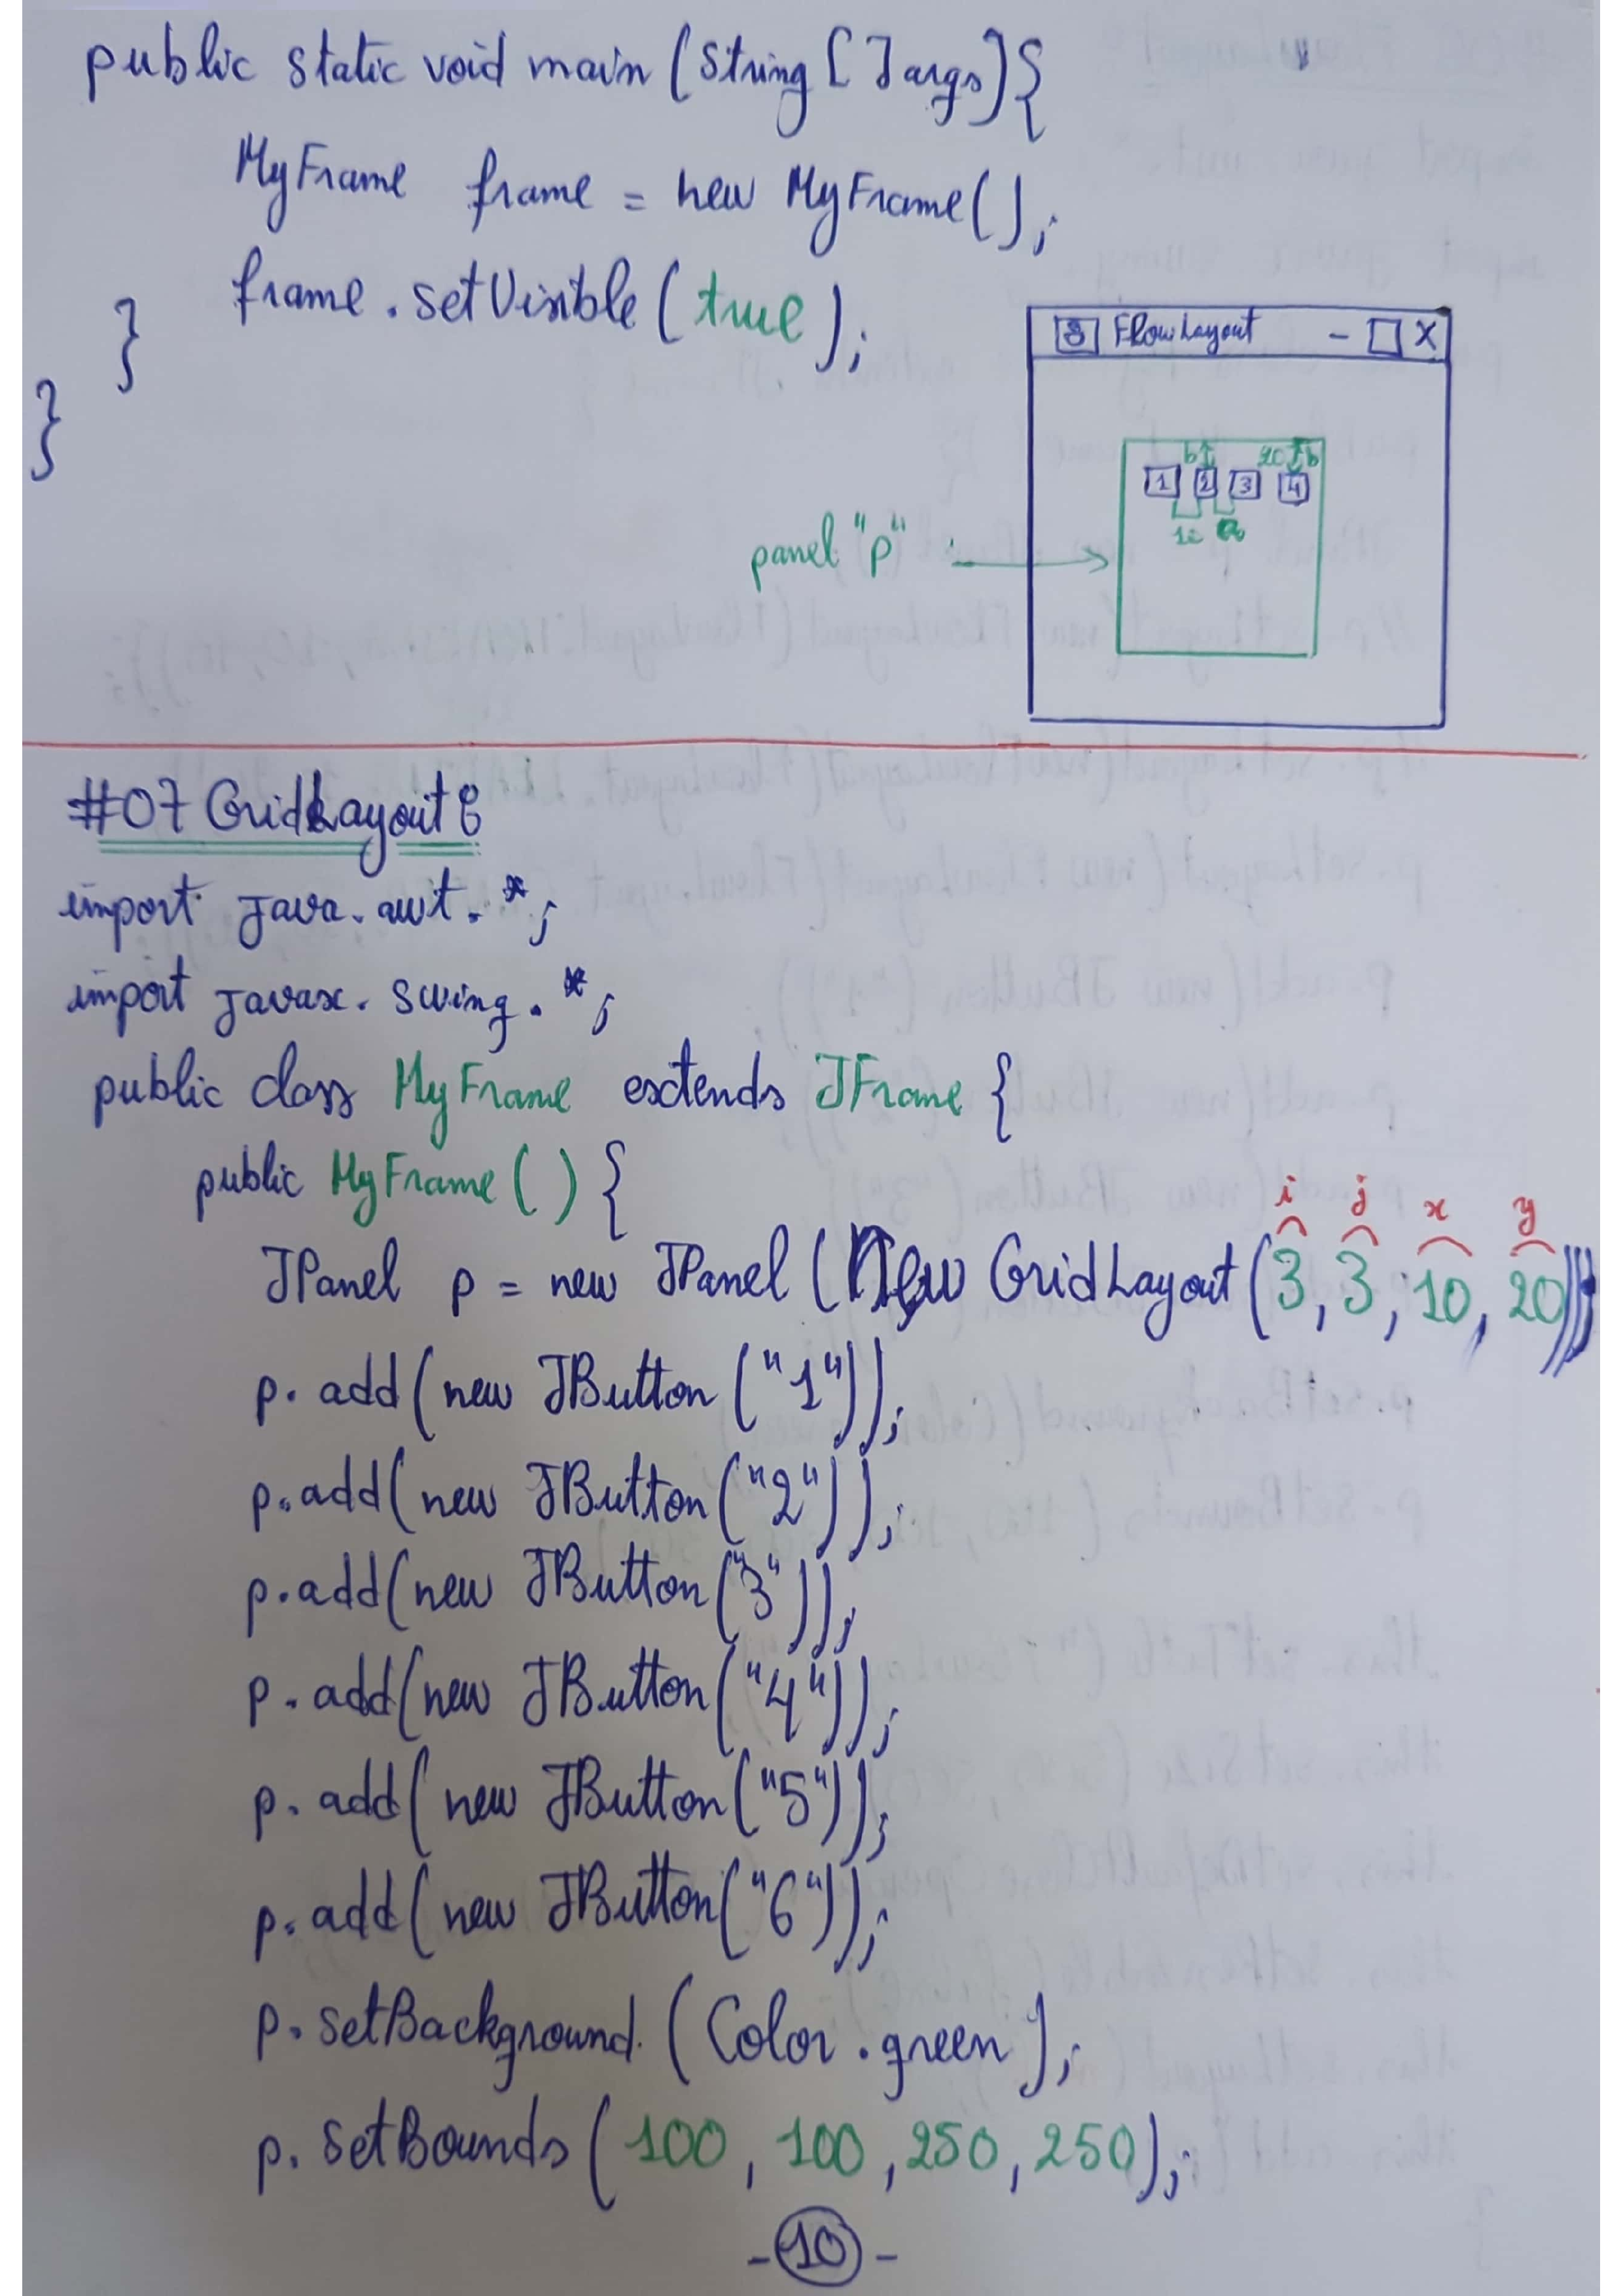 public static void main (String [] args) {
MyFrame frame = new MyFrame();
frame.setVisible(true);
}
}
FlowLayout - X
b 20 b
1 2 3 4
10 a
panel "p"
#07 GridLayout :
import java.awt.*;
import javax.swing.*;
public class MyFrame extends JFrame {
public MyFrame() {
i j x y
JPanel p = new JPanel (New GridLayout(3, 3, 10, 20));
p.add(new JButton ("1"));
p.add(new JButton("2"));
p.add(new JButton("3"));
p.add(new JButton("4"));
p.add(new JButton("5"));
p.add(new JButton("6"));
p.setBackground.(Color.green);
p.setBounds(100, 100, 250, 250);
-10-